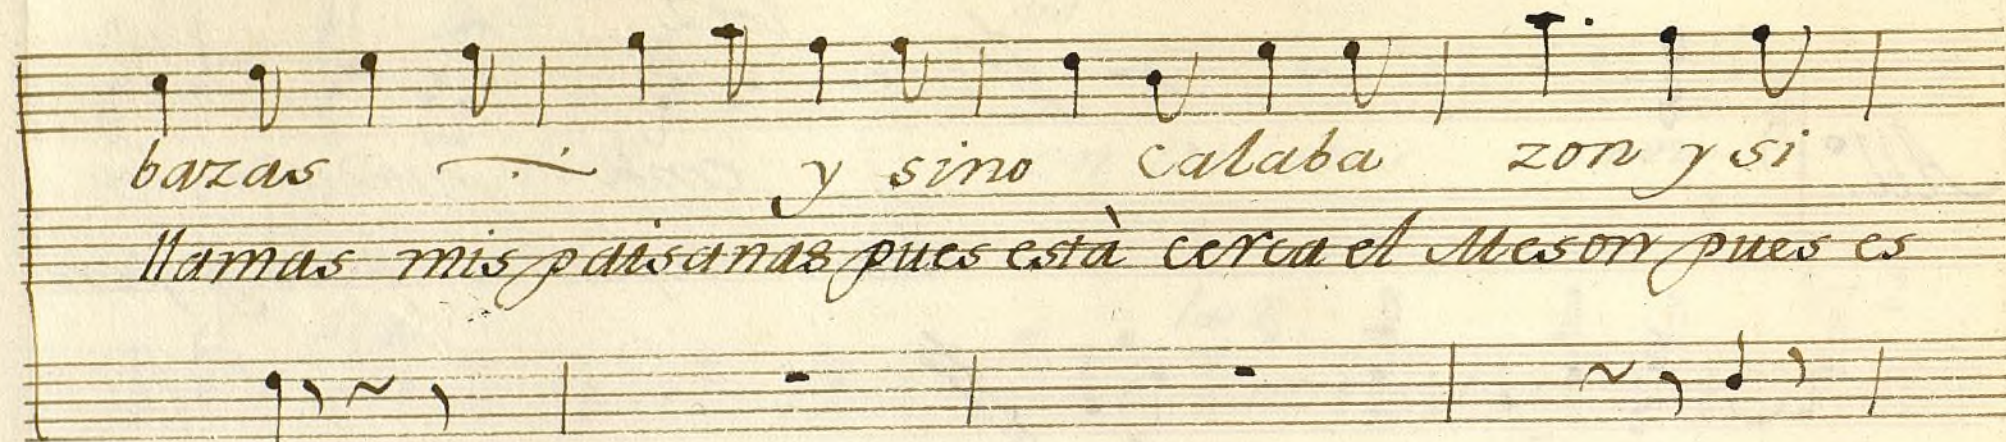 bazas y sino calaba zon y si
llamas mis paisanas pues està cerca el Meson pues es